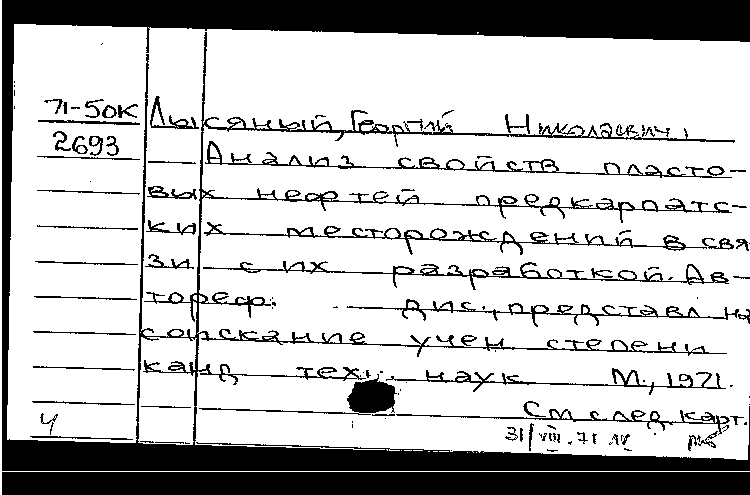 71-50К Лысяный, Георгий Николаевич.
2693 Анализ свойств пласто-
вых нефтей предкарпатс-
ких месторождений в свя
зи с их разработкой. Ав-
тореф. дис., представл. на
соискание учен. степени
канд. техн. наук М., 1971.
См след. карт.
Ч 31/VIII.71